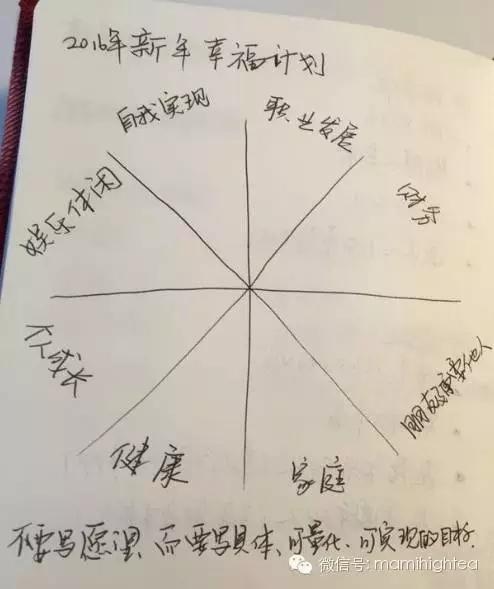 2016年新年幸福计划
自我实现
职业发展
娱乐休闲
财务
个人成长
朋友和重要他人
健康
家庭
不要写愿望、而要写具体、可量化、可实现的目标.
微信号: mamihightea